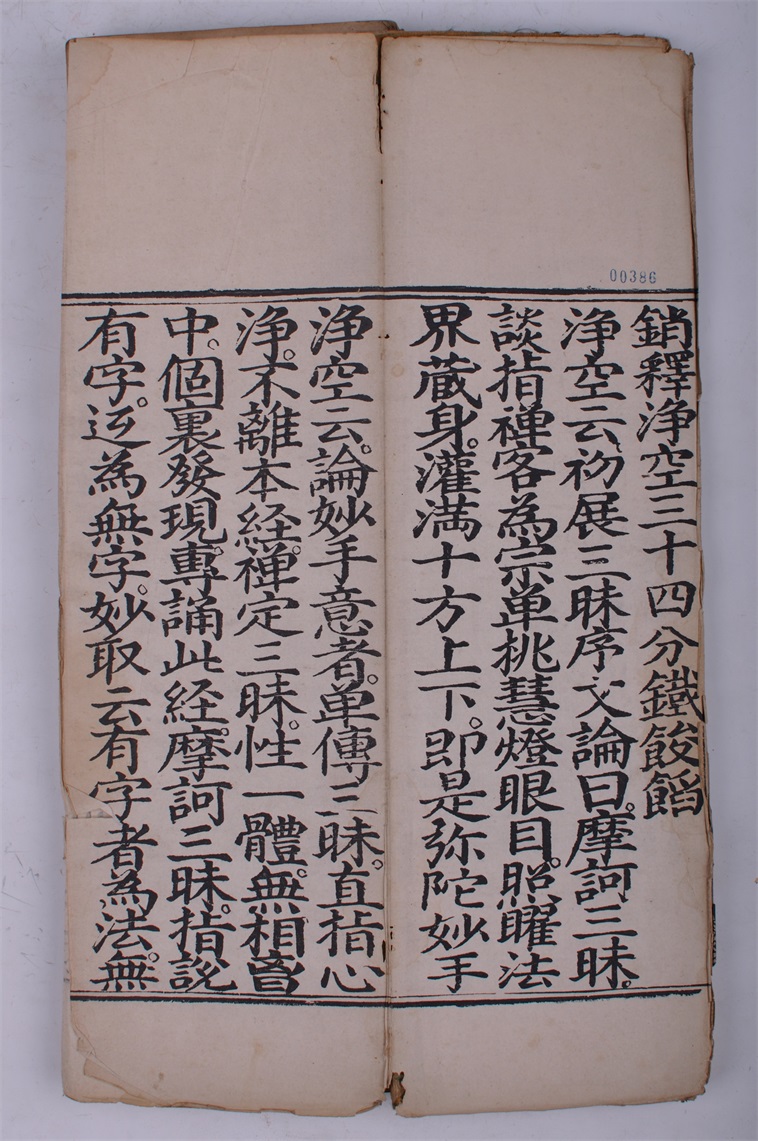 00386
銷釋淨空三十四分鐵餕餡
淨空云初展三昧序文論曰。摩訶三昧。
談指禅客為宗单挑慧燈眼目。照曜法
界蔵身。灌满十方上下。即是弥陀妙手
淨空云。論妙手意者。单傳三昧。直指心
淨。不離本経。禅定三昧。性一體。無相窅
中。個裏發現。專誦此経。摩訶三昧。指説
有字。迊為無字。妙取云有字者為法。無